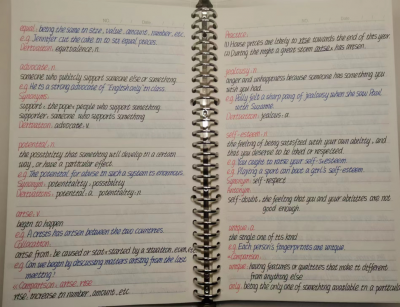 equal. being the same in size, value, amount, number, etc.
e.g. Jennifer cut the cake in to six equal pieces.
Derivation. equivalence. n.
advocate. n.
someone who publicly support someone else or something
e.g. He is a strong advocate of "English only" in class.
Synonyms
support: the people who support something
supporter: someone who supports something
Derivation. advocate. v.
potential. n.
the possibility that something will develop in a certain
way, or have a particular effect
e.g. The potential for abuse in such a system is enormous.
Synonym. potentiality; possibility
Derivation. potential. a. potentiality. n
arise. v
begin to happen
e.g. A crisis has arisen between the two countries.
arise from: be caused or start started by a situation, event, etc
e.g. Can we begin by discussing matters arising from the last
meeting?
* Comparison: arise, rise
rise: increase in number, amount, etc
Practice.
1) House prices are likely to rise towards the end of this year.
2) During the night a great storm has arisen.
jealousy. n.
anger and unhappiness because someone has something you
wish you had.
e.g. Polly felt a sharp pang of jealousy when she saw Paul
with Suzanne.
Derivation. jealous. a.
self-esteem. n.
the feeling of being satisfied with your own ability, and
that you deserve to be liked or respected.
e.g. You ought to raise your self-esteem.
e.g. Playing a sport can boost a girl's self-esteem.
Synonym. self-respect
Antonym.
self-doubt. the feeling that you and your abilities are not
good enough.
unique. a.
the single one of its kind
e.g. Each person's fingerprints are unique.
* Comparison
unique: having features or qualities that make it different
from anything else
only: being the only one of something available in a particular